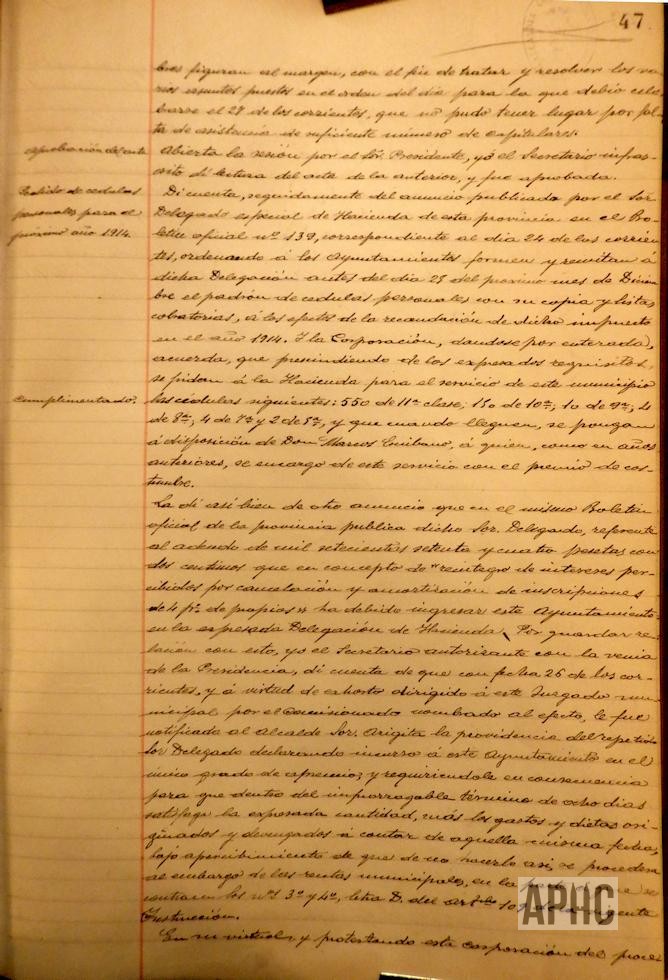 47
bres figuran al margen, con el fin de tratar y resolver los va
rios asuntos puestos en el orden del día para la que debió cele
brarse el 27 de los corrientes, que no pudo tener lugar por fal
ta de asistencia de suficiente número de capitulares.
Aprobación del acta
Abierta la sesión por el Sor. Presidente, yó el Secretario infras-
crito dí lectura del acta de la anterior, y fue aprobada.
Pedido de cedulas
personales para el
próximo año 1914.
Dí cuenta, seguidamente del anuncio publicado por el Sor.
Delegado especial de Hacienda de esta provincia en el Bo-
letín oficial nº 139, correspondiente al dia 24 de los corrien-
tes, ordenando á los Ayuntamientos formen y remitan á
dicha Delegación antes del dia 25 del proximo mes de Diciem
bre el padrón de cedulas personales con su copia y listas
cobratorias, á los efectos de la recaudación de dicho impuesto
en el año 1914. Y la Corporación, dandose por enterada,
acuerda, que prescindiendo de los expresados requisitos,
se pidan á la Hacienda para el servicio de este municipio
Cumplimentado.
las cédulas siguientes: 550 de 11ª clase; 150 de 10ª; 10 de 9ª; 4
de 8ª; 4 de 7ª y 2 de 5ª, y que cuando lleguen, se pongan
á disposición de Don Marcos, á quien, como en años
anteriores, se encargo de este servicio con el premio de cos-
tumbre.
La dí así bien de otro anuncio que en el mismo Boletín
oficial de la provincia publica dicho Sor. Delegado, referente
al adeudo de mil setecientas setenta y cuatro pesetas con
dos centimos que en concepto de "reintegro de intereses per-
cibidos por cancelación y amortización de inscripciones
de 4 pr. de propios" ha debido ingresar este Ayuntamiento
en la expresada Delegación de Hacienda. Por guardar re-
lación con esto, yo el Secretario autorizante con la venia
de la Presidencia, dí cuenta de que con fecha 26 de los cor-
rientes, y á virtud de exhorto dirigido á este Juzgado mu-
nicipal por el Comisionado nombrado al efecto, le fue
notificada al Alcalde Sor. Arigita la providencia del repetido
Sor Delegado declarando incurso á este Ayuntamiento en el
único grado de apremio; y requiriendole en consecuencia
para que dentro del improrrogable término de ocho dias
satisfaga la expresada cantidad, más los gastos y dietas ori-
ginados y devengados á contar de aquella misma fecha,
bajo apercibimiento de que de no hacerlo asi, se procederá
al embargo de las rentas municipales, en la forma que se
contraen los nºs 3º y 4º, letra D. del artículo 109 de la vigente
Instrucción.
En su virtud, y protestando esta corporación del proce-
APHC